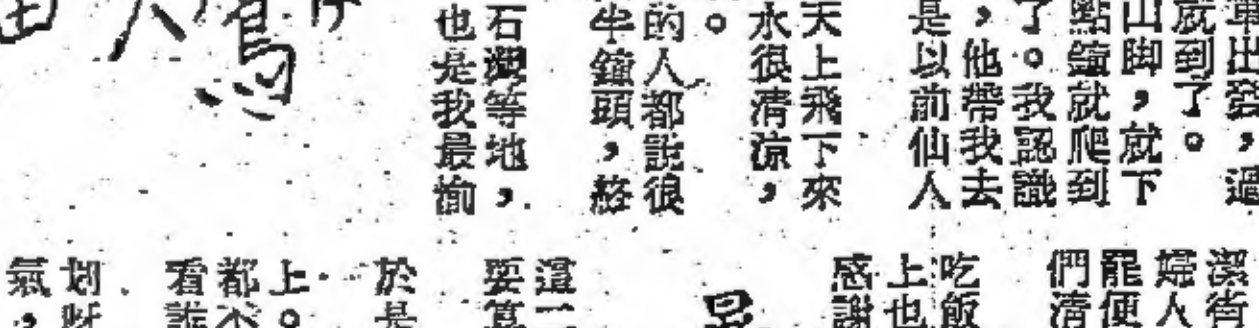 車出發，過
就到了。
山脚，就下
點鐘就爬到
了。我認識
，他帶我去
是以前仙人
天上飛下來
水很清涼，
。
的人都說很
半鐘頭，終
石澗等地，
也是我最愉
潔街
婦人
罷便
們清
吃飯
上也
感謝
這一
要算
於是
上。
都不
看誰
划呀
氣，